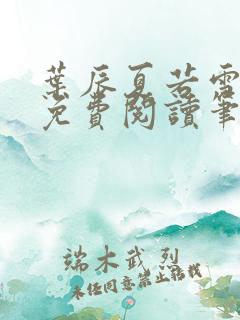 葉辰夏若雪
免費閱讀筆
端木武烈
未經同意禁止轉載